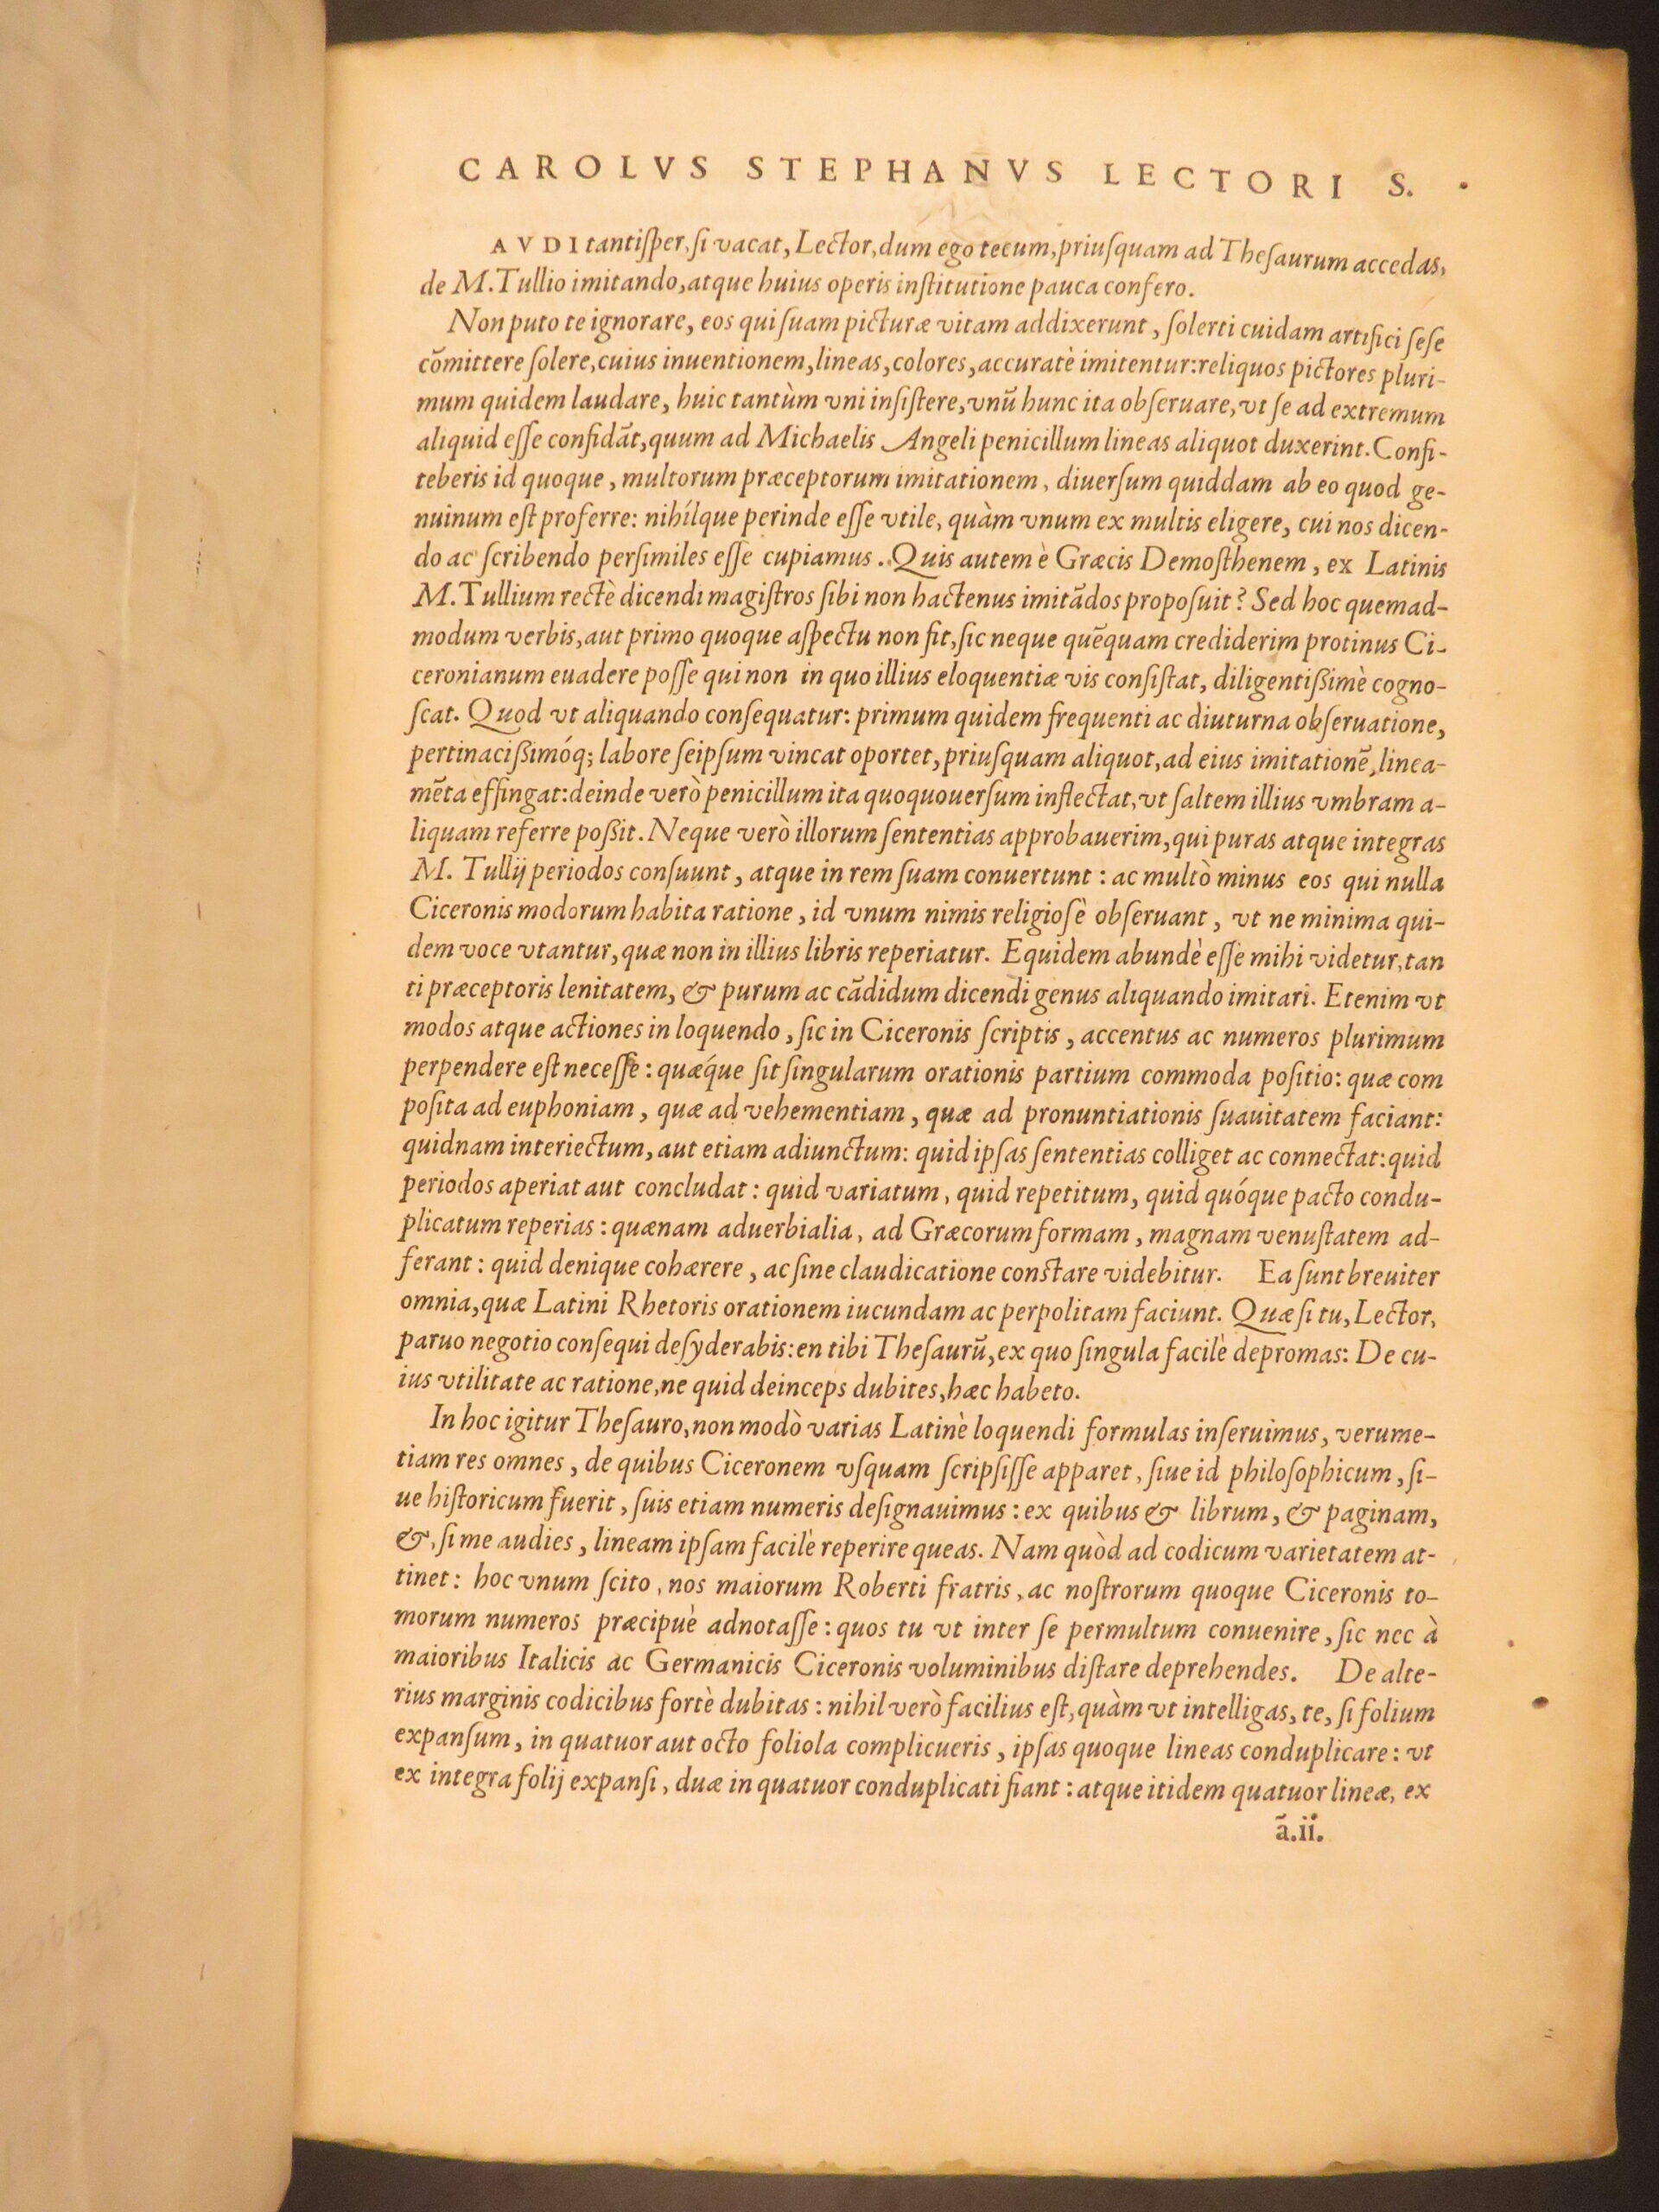 CAROLVS STEPHANVS LECTORI S.
AVDI tantiſper, ſi vacat, Lector, dum ego tecum, priuſquam ad Theſaurum accedas,
de M. Tullio imitando, atque huius operis inſtitutione pauca confero.
Non puto te ignorare, eos qui ſuam picturæ vitam addixerunt, ſolerti cuidam artifici ſeſe
cõmittere ſolere, cuius inuentionem, lineas, colores, accuratè imitentur: reliquos pictores pluri-
mum quidem laudare, huic tantùm vni inſiſtere, vnũ hunc ita obſeruare, vt ſe ad extremum
aliquid eſſe confidãt, quum ad Michaelis Angeli penicillum lineas aliquot duxerint. Confi-
teberis id quoque, multorum præceptorum imitationem, diuerſum quiddam ab eo quod ge-
nuinum eſt proferre: nihílque perinde eſſe vtile, quàm vnum ex multis eligere, cui nos dicen-
do ac ſcribendo perſimiles eſſe cupiamus. Quis autem è Græcis Demoſthenem, ex Latinis
M. Tullium rectè dicendi magiſtros ſibi non hactenus imitãdos propoſuit? Sed hoc quemad-
modum verbis, aut primo quoque aſpectu non fit, ſic neque quẽquam crediderim protinus Ci-
ceronianum euadere poſſe qui non in quo illius eloquentiæ vis conſiſtat, diligentißimè cogno-
ſcat. Quod vt aliquando conſequatur: primum quidem frequenti ac diuturna obſeruatione,
pertinacißimóq; labore ſeipſum vincat oportet, priuſquam aliquot, ad eius imitationẽ, linea-
mẽta effingat: deinde verò penicillum ita quoquouerſum inflectat, vt ſaltem illius vmbram a-
liquam referre poßit. Neque verò illorum ſententias approbauerim, qui puras atque integras
M. Tullij periodos conſuunt, atque in rem ſuam conuertunt: ac multò minus eos qui nulla
Ciceronis modorum habita ratione, id vnum nimis religioſè obſeruant, vt ne minima qui-
dem voce vtantur, quæ non in illius libris reperiatur. Equidem abundè eſſe mihi videtur, tan
ti præceptoris lenitatem, & purum ac cãdidum dicendi genus aliquando imitari. Etenim vt
modos atque actiones in loquendo, ſic in Ciceronis ſcriptis, accentus ac numeros plurimum
perpendere eſt neceſſe: quæque ſit ſingularum orationis partium commoda poſitio: quæ com
poſita ad euphoniam, quæ ad vehementiam, quæ ad pronuntiationis ſuauitatem faciant:
quidnam interiectum, aut etiam adiunctum: quid ipſas ſententias colliget ac connectat: quid
periodos aperiat aut concludat: quid variatum, quid repetitum, quid quóque pacto condu-
plicatum reperias: quænam aduerbialia, ad Græcorum formam, magnam venuſtatem ad-
ferant: quid denique cohærere, ac ſine claudicatione conſtare videbitur. Ea ſunt breuiter
omnia, quæ Latini Rhetoris orationem iucundam ac perpolitam faciunt. Quæ ſi tu, Lector,
paruo negotio conſequi deſyderabis: en tibi Theſaurũ, ex quo ſingula facilè depromas: De cu-
ius vtilitate ac ratione, ne quid deinceps dubites, hæc habeto.
In hoc igitur Theſauro, non modò varias Latinè loquendi formulas inſeruimus, verume-
tiam res omnes, de quibus Ciceronem vſquam ſcripſiſſe apparet, ſiue id philoſophicum, ſi-
ue hiſtoricum fuerit, ſuis etiam numeris deſignauimus: ex quibus & librum, & paginam,
&, ſi me audies, lineam ipſam facilè reperire queas. Nam quòd ad codicum varietatem at-
tinet: hoc vnum ſcito, nos maiorum Roberti fratris, ac noſtrorum quoque Ciceronis to-
morum numeros præcipuè adnotaſſe: quos tu vt inter ſe permultum conuenire, ſic nec à
maioribus Italicis ac Germanicis Ciceronis voluminibus diſtare deprehendes. De alte-
rius marginis codicibus fortè dubitas: nihil verò facilius eſt, quàm vt intelligas, te, ſi folium
expanſum, in quatuor aut octo foliola complicueris, ipſas quoque lineas conduplicare: vt
ex integra folij expanſi, duæ in quatuor conduplicati fiant: atque itidem quatuor lineæ, ex
ã.ii.